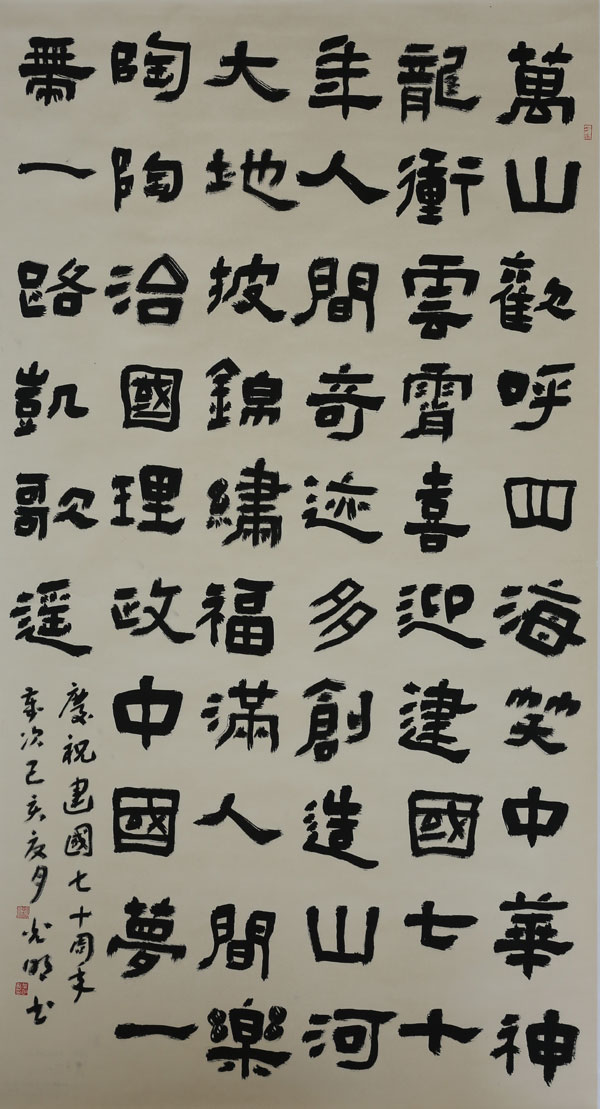 萬山歡呼四海笑中華神
龍衝雲霄喜迎建國七十
年人間奇迹多創造山河
大地披錦繡福滿人間樂
陶陶治國理政中國夢一
帶一路凱歌遥
慶祝建國七十周年
歲次己亥夏月光明书